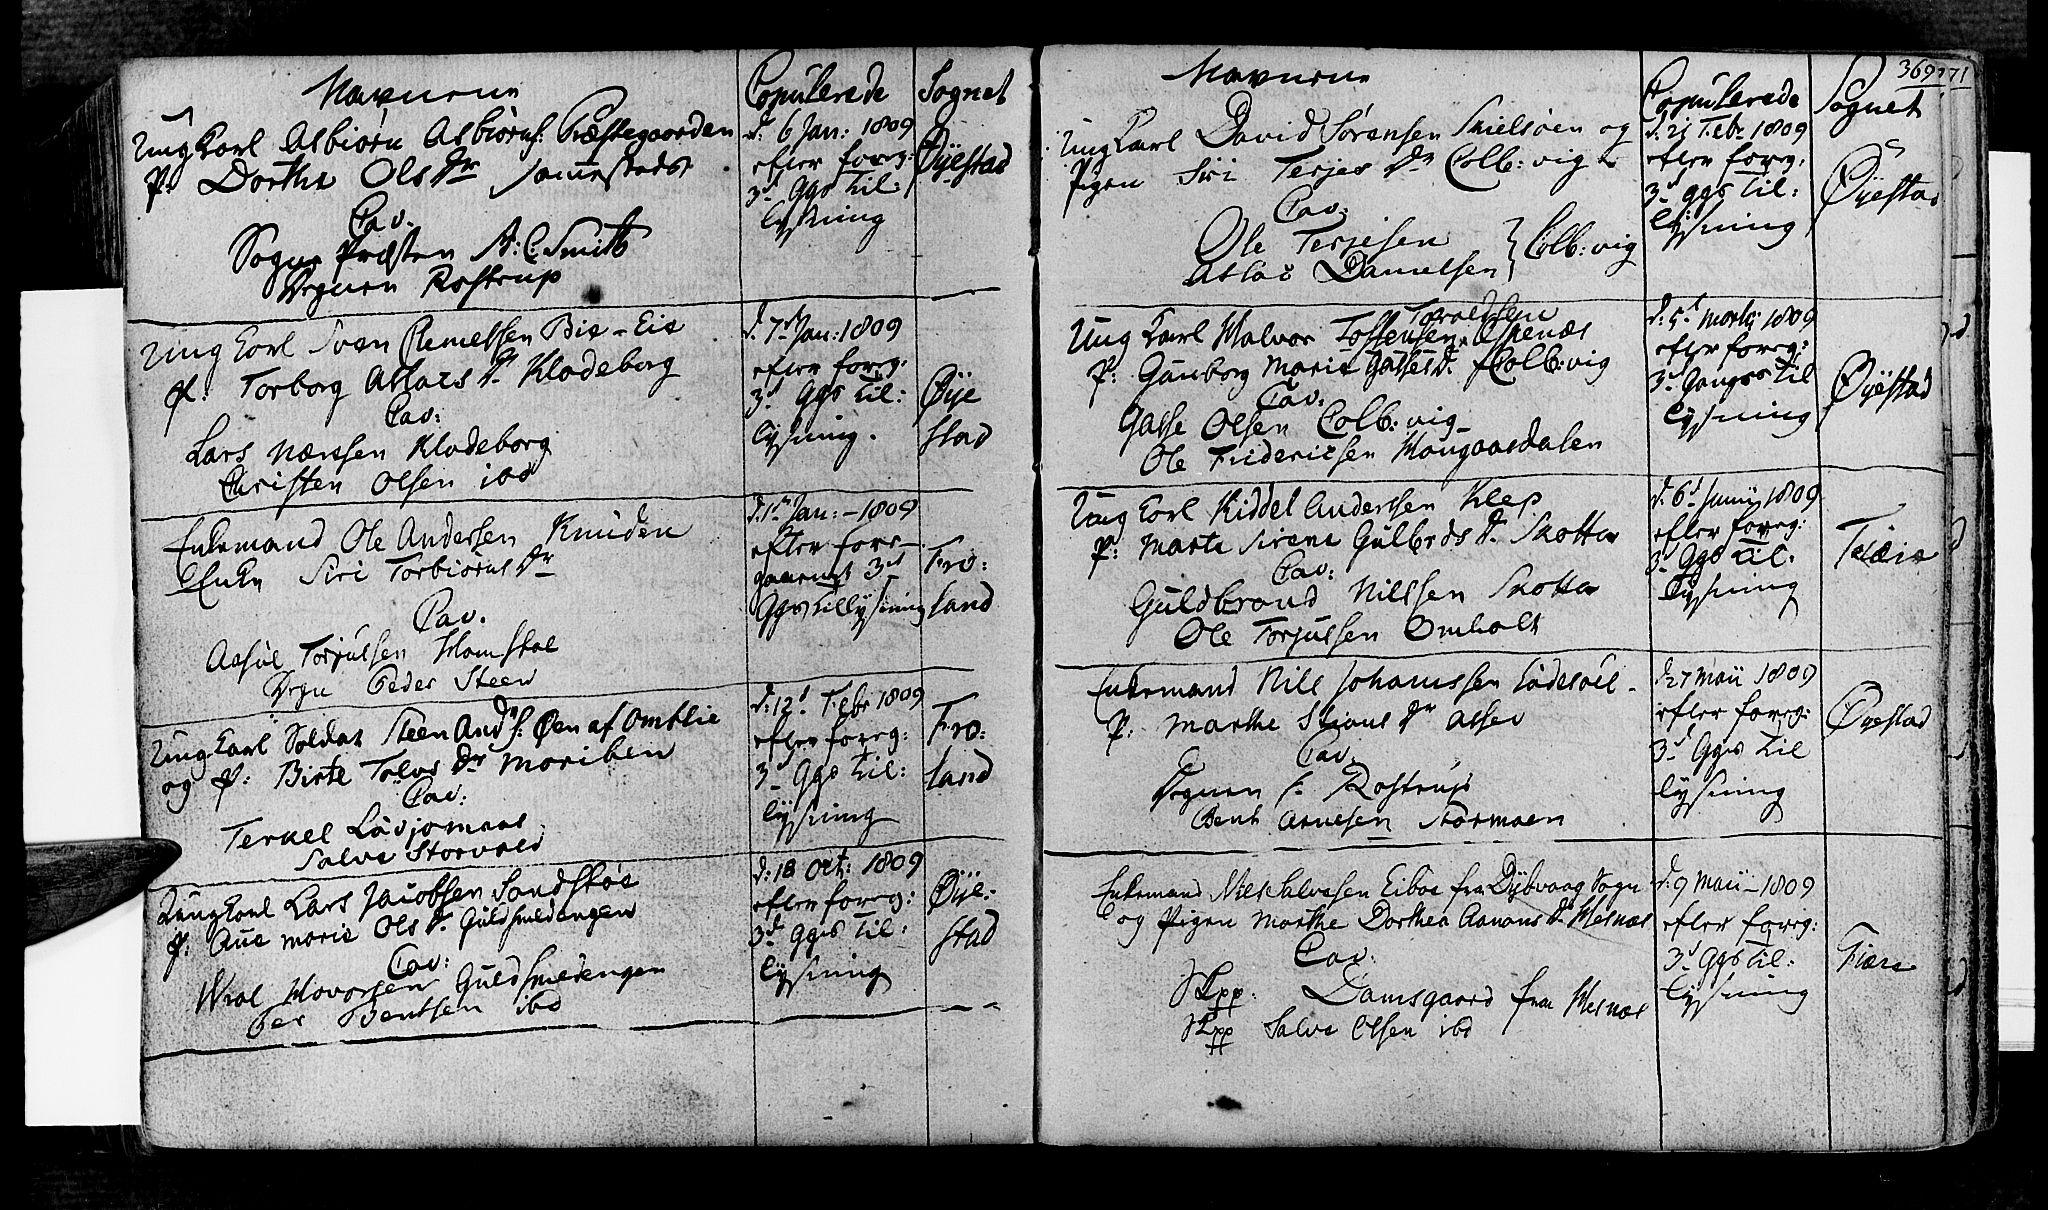 Navnene
Copulerede
Sognet
Ung Karl Asbiørn Asbiørns: Præstegaarden
P: Dorthe Ols Dr
Cav:
Sogne Præsten A: C: Smith
Drguen Rostrup
d: 6 Jan: 1809
efter foreg:
3de Ggs til:
lysning
Øyestad
Ung Karl Sven Clemetsen Bie-Eie
P: Torborg Aslacs Dr Klodeborg
Cav:
Lars Nærssen Klodeborg
Christen Olsen ibd
d: 7de Jan: 1809
efter foreg:
3de Ggs til:
lysning.
Øye
stad
Enkemand Ole Andersen Knuden
Enken Siri Torbiørns Dr
Cav.
Aasul Torjulsen Homstøl
Drgn Peder Steen
Jan: - 1809
efter fore-
gaaende 3de
Ggs tillysning
Fro:
land
Ung Karl Soldat Steen Ands: Øen af Omblie
og P: Birte Tolvs Dr Moriben
Cav:
Terkel
Salve Storvold
d: 12te Febr 1809
efter foreg:
3de Ggs til:
lysning
Fro:
land
Ung Karl Lars Jacobsen Sandstøe
P: Ane Marie Ols Dr Guldsmedengen
Cav:
Wral Hovorsen Guldsmedengen
Per Bentsen ibd
d: 18 Oct: 1809
efter foreg:
3de Ggs til:
lysning
Øye-
stad
Navnene
Copulerede
Sognet
369
171
Ung Karl David Sørensen og
Pigen Siri Terjes Dr Colb:vig
Cav:
Ole Terjesen
Aslac Danielsen } Colb:vig
d: 21 Febr 1809
efter foreg:
3de Ggs til:
lysning
Øyestad
Toroldsen
Ung Karl Halvor Tostensen Espenæs
P: Gunborg Marie Gasses Dr Colb:vig
Cav:
Gasse Olsen Colb:vig
Ole Fridericsen Haugaasdalen
d: 5te Martij 1809
efter foreg:
3de Ganges til
lysning
Øyestad
Ung Karl Kiddel Anderssen Klep
P: Marte Sirene Gulbrds Dr Skotta
Cav:
Guldbrand Nilssen Skotta
Ole Torjulssen Omholt
d: 6te Junij 1809
efter foreg:
3de Ggs til:
lysning
Fiære
Enkemand Nils Johanssen
P: Marthe Stians Dr Assev
Cav.
Drguen Rostrup
Bent Arnesen Stormoen
d 27 Maii 1809
efter foreg:
3de Ggs til
lysning
Øyestad
Enkemand Niels Salvesen Eiboe fra Dybvaag Sogn
og Pigen Marthe Dorthea Aanons Dr Hesnæs
Cav:
Skpp: Damsgaard fra Hesnæs
Skpp Salve Olsen ibd
d: 9 Maii - 1809
efter foreg:
3de Ggs til:
lysning
Fiære